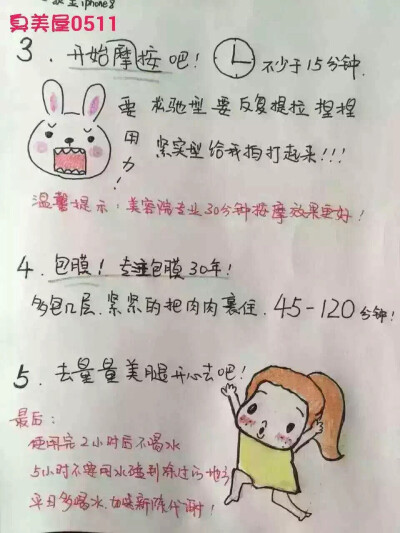 臭美屋0511
3.开始摩按吧! 不少于15分钟.
要用力!
松驰型 要反复提拉 捏捏
紧实型 给我拍打起来!!!
温馨提示:美容院专业30分钟按摩效果更好!
4.包膜! 专注包膜30年!
多包几层.紧紧的把肉肉裹住.45-120分钟!
5.去量量美腿开心去吧!
最后:
使用完2小时后不喝水
5小时不要用水碰到涂过的地方
平日多喝水.加速新陈代谢!